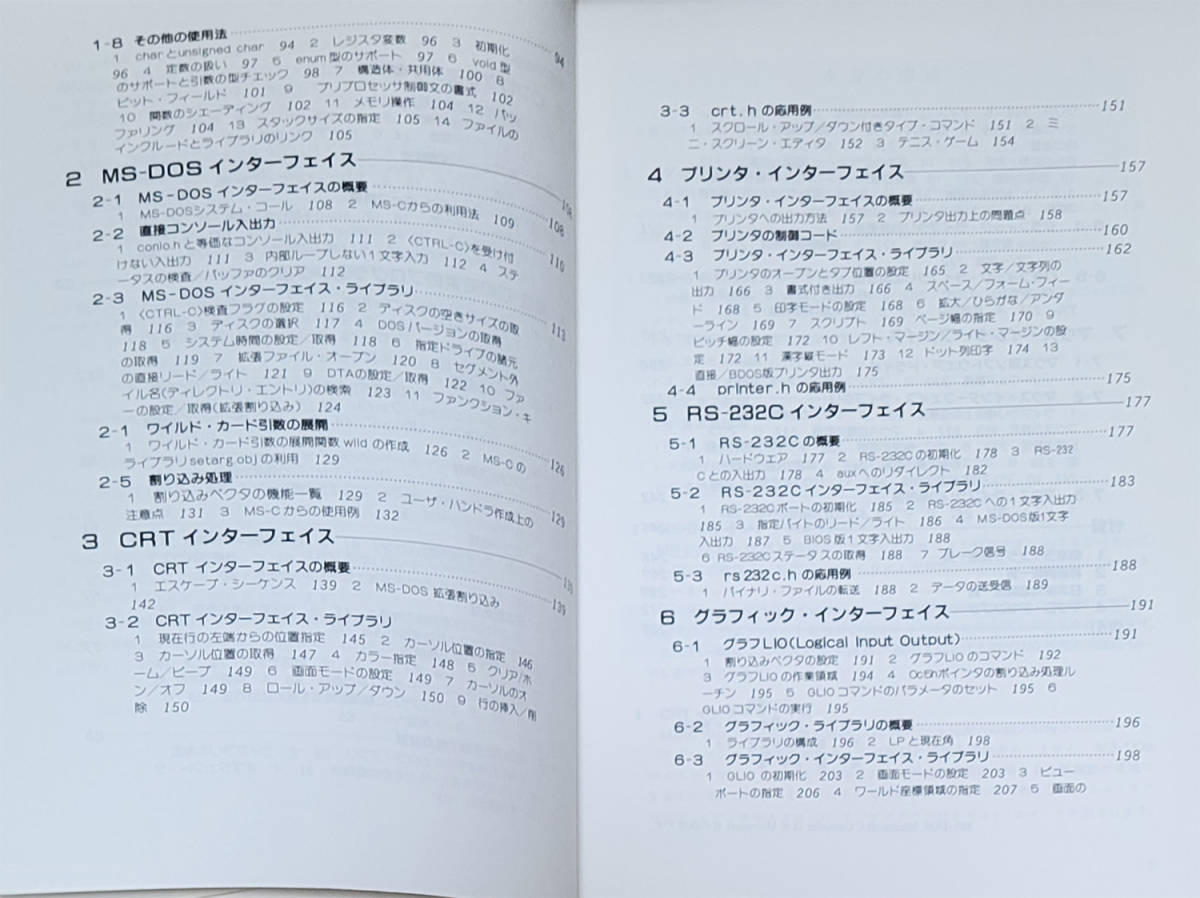 1-8 その他の使用法 94
1 charとunsigned char 94 2 レジスタ変数 96 3 初期化
96 4 定数の扱い 97 5 enum型のサポート 97 6 void型
のサポートと引数の型チェック 98 7 構造体・共用体 100 8
ビット・フィールド 101 9 プリプロセッサ制御文の書式 102
10 関数のシェーディング 102 11 メモリ操作 104 12 バッ
ファリング 104 13 スタックサイズの指定 105 14 ファイルの
インクルードとライブラリのリンク 105
2 MS-DOS インターフェイス 108
2-1 MS-DOS インターフェイスの概要 108
1 MS-DOSシステム・コール 108 2 MS-Cからの利用法 109
2-2 直接コンソール入出力 110
1 conio.hと等価なコンソール入出力 111 2 〈CTRL-C〉を受け付
けない入出力 111 3 内部ループしない1文字入力 112 4 ステ
ータスの検査/バッファのクリア 112
2-3 MS-DOS インターフェイス・ライブラリ 113
1 〈CTRL-C〉検査フラグの設定 116 2 ディスクの空きサイズの取
得 116 3 ディスクの選択 117 4 DOSバージョンの取得
118 5 システム時間の設定/取得 118 6 指定ドライブの諸元
の取得 119 7 拡張ファイル・オープン 120 8 セグメント外
の直接リード/ライト 121 9 DTAの設定/取得 122 10 ファ
イル名(ディレクトリ・エントリ)の検索 123 11 ファンクション・キ
ーの設定/取得(拡張割り込み) 124
2-1 ワイルド・カード引数の展開 126
1 ワイルド・カード引数の展開関数wildの作成 126 2 MS-Cの
ライブラリsetarg.objの利用 129
2-5 割り込み処理 129
1 割り込みベクタの機能一覧 129 2 ユーザ・ハンドラ作成上の
注意点 131 3 MS-Cからの使用例 132
3 CRT インターフェイス 139
3-1 CRT インターフェイスの概要 139
1 エスケープ・シーケンス 139 2 MS-DOS 拡張割り込み
142
3-2 CRT インターフェイス・ライブラリ
1 現在行の左端からの位置指定 145 2 カーソル位置の指定 146
3 カーソル位置の取得 147 4 カラー指定 148 5 クリア/ホ
ーム/ビープ 149 6 画面モードの設定 149 7 カーソルのオ
ン/オフ 149 8 ロール・アップ/ダウン 150 9 行の挿入/削
除 150
3-3 crt.h の応用例 151
1 スクロール・アップ/ダウン付きタイプ・コマンド 151 2 ミ
ニ・スクリーン・エディタ 152 3 テニス・ゲーム 154
4 プリンタ・インターフェイス 157
4-1 プリンタ・インターフェイスの概要 157
1 プリンタへの出力方法 157 2 プリンタ出力上の問題点 158
4-2 プリンタの制御コード 160
4-3 プリンタ・インターフェイス・ライブラリ 162
1 プリンタのオープンとタブ位置の設定 165 2 文字/文字列の
出力 166 3 書式付き出力 166 4 スペース/フォーム・フィー
ド 168 5 印字モードの設定 168 6 拡大/ひらがな/アンダ
ーライン 169 7 スクリプト 169 8 ページ幅の指定 170 9
ピッチ幅の設定 172 10 レフト・マージン/ライト・マージンの設
定 172 11 漢字縦モード 173 12 ドット列印字 174 13
直接/BDOS版プリンタ出力 175
4-4 printer.h の応用例 175
5 RS-232C インターフェイス 177
5-1 RS-232Cの概要 177
1 ハードウェア 177 2 RS-232Cの初期化 178 3 RS-232
Cとの入出力 178 4 auxへのリダイレクト 182
5-2 RS-232C インターフェイス・ライブラリ 183
1 RS-232Cポートの初期化 185 2 RS-232Cへの1文字入出力
185 3 指定バイトのリード/ライト 186 4 MS-DOS版1文字
入出力 187 5 BIOS版1文字入出力 188
6 RS-232Cステータスの取得 188 7 ブレーク信号 188
5-3 rs232c.h の応用例 188
1 バイナリ・ファイルの転送 188 2 データの送受信 189
6 グラフィック・インターフェイス 191
6-1 グラフLIO(Logical Input Output) 191
1 割り込みベクタの設定 191 2 グラフLIOのコマンド 192
3 グラフLIOの作業領域 194 4 0c5hポインタの割り込み処理ル
ーチン 195 5 GLIOコマンドのパラメータのセット 195 6
GLIOコマンドの実行 195
6-2 グラフィック・ライブラリの概要 196
1 ライブラリの構成 196 2 LPと現在角 198
6-3 グラフィック・インターフェイス・ライブラリ 198
1 GLIO の初期化 203 2 画面モードの設定 203 3 ビュー
ポートの指定 206 4 ワールド座標領域の指定 207 5 画面の